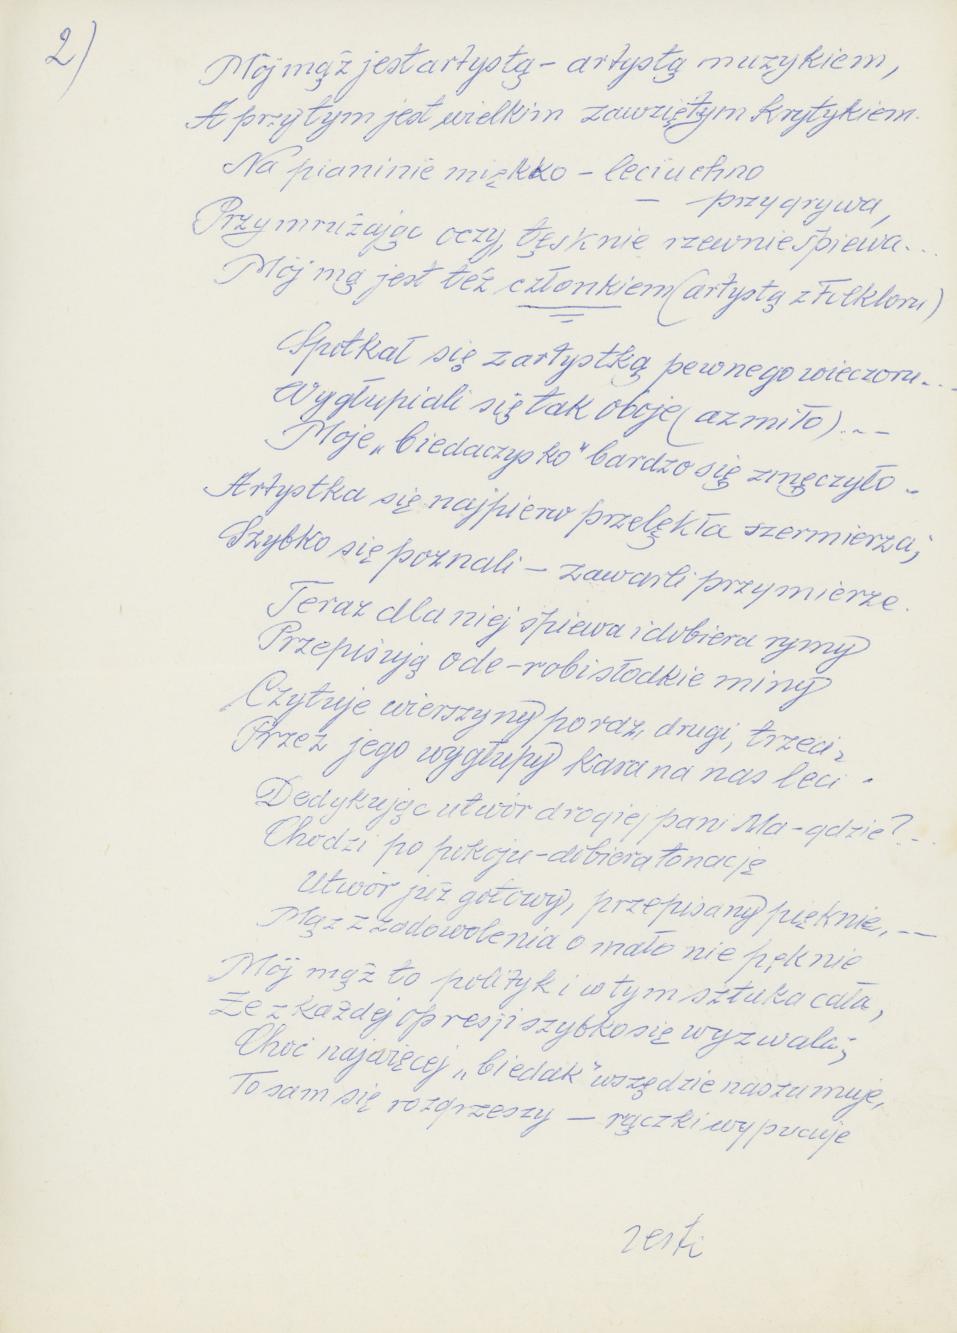 2)
Mój mąż jest artystą - artystą muzykiem,
A przy tym jest wielkim zawziętym krytykiem.
Na pianinie miękko - leciuchno
- przygrywa,
Przymrużając oczy, tęsknie rzewnie śpiewa...
Mój mą jest też członkiem (artystą z Folkloru)
Spotkał się z artystką pewnego wieczoru...
Wygłupiali się tak oboje (aż miło)...
Moje „biedaczysko" bardzo się zmęczyło.
Artystka się najpierw przelękła szermierza;
Szybko się poznali - zawarli przymierze.
Teraz dla niej śpiewa i dobiera rymy
Przepisują ode - robi słodkie miny
Czytuje wierszyny po raz, drugi, trzeci,
Przez jego wygłupy kara na nas leci.
Dedykując utwór drogiej pani Ma-gdzie?..
Chodzi po pokoju - dobiera tonację
Utwór już gotowy, przepisany pięknie, --
Mąż z zadowolenia o mało nie pęknie
Mój mąż to polityk i w tym sztuka cała,
Że z każdej opresji szybko się wyzwala;
Choć najwięcej „biedak" wszędzie naszumuje,
To sam się rozgrzeszy - rączki wypucuje